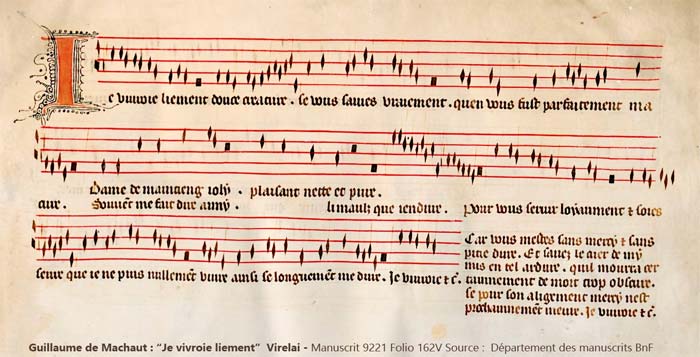 I
e vivroie liement douce creature . se vous savies vraiement . quen vous fust parfaitement ma
Dame de mainteng ioly . plaisant nette et pure .
cure . Souvēt me fait dire aimy . li maulz que iendure . Pour vous servir loyaument &
servir que ie ne puis nullemēt vivre ainsi se longuemēt me dure . Je vivroie & c̄ .
Car vous mestes sans mercy & sans
pite dure . Et savez le cuer de my
mis en tel ardure . quil mourra cer
tainement de mort trop obscure .
se pour son aligement mercy nest
prochainnement meure . Je vivroie & c̄ .
Guillaume de Machaut : “Je vivroie liement” Virelai - Manuscrit 9221 Folio 162V Source : Département des manuscrits BnF